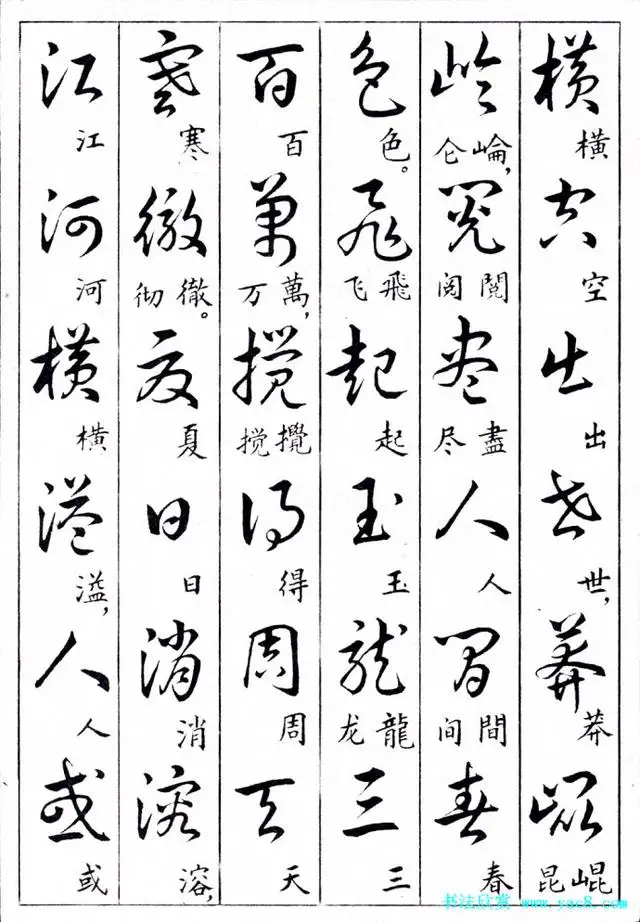 横 横 空 空 出 出 世 世， 莽 莽 崐 崐 昆
崘 崘， 仑 閲 閲 阅 盡 盡 尽 人 人 間 間 间 春 春
色 色。 飛 飛 飞 起 起 玉 玉 龍 龍 龙 三 三
百 百 萬 萬， 万 攪 攪 搅 得 得 周 周 天 天
寒 寒 徹 徹。 彻 夏 夏 日 日 消 消 溶 溶，
江 江 河 河 横 横 溢 溢， 人 人 或 或
书法欣赏 www.yac8.com